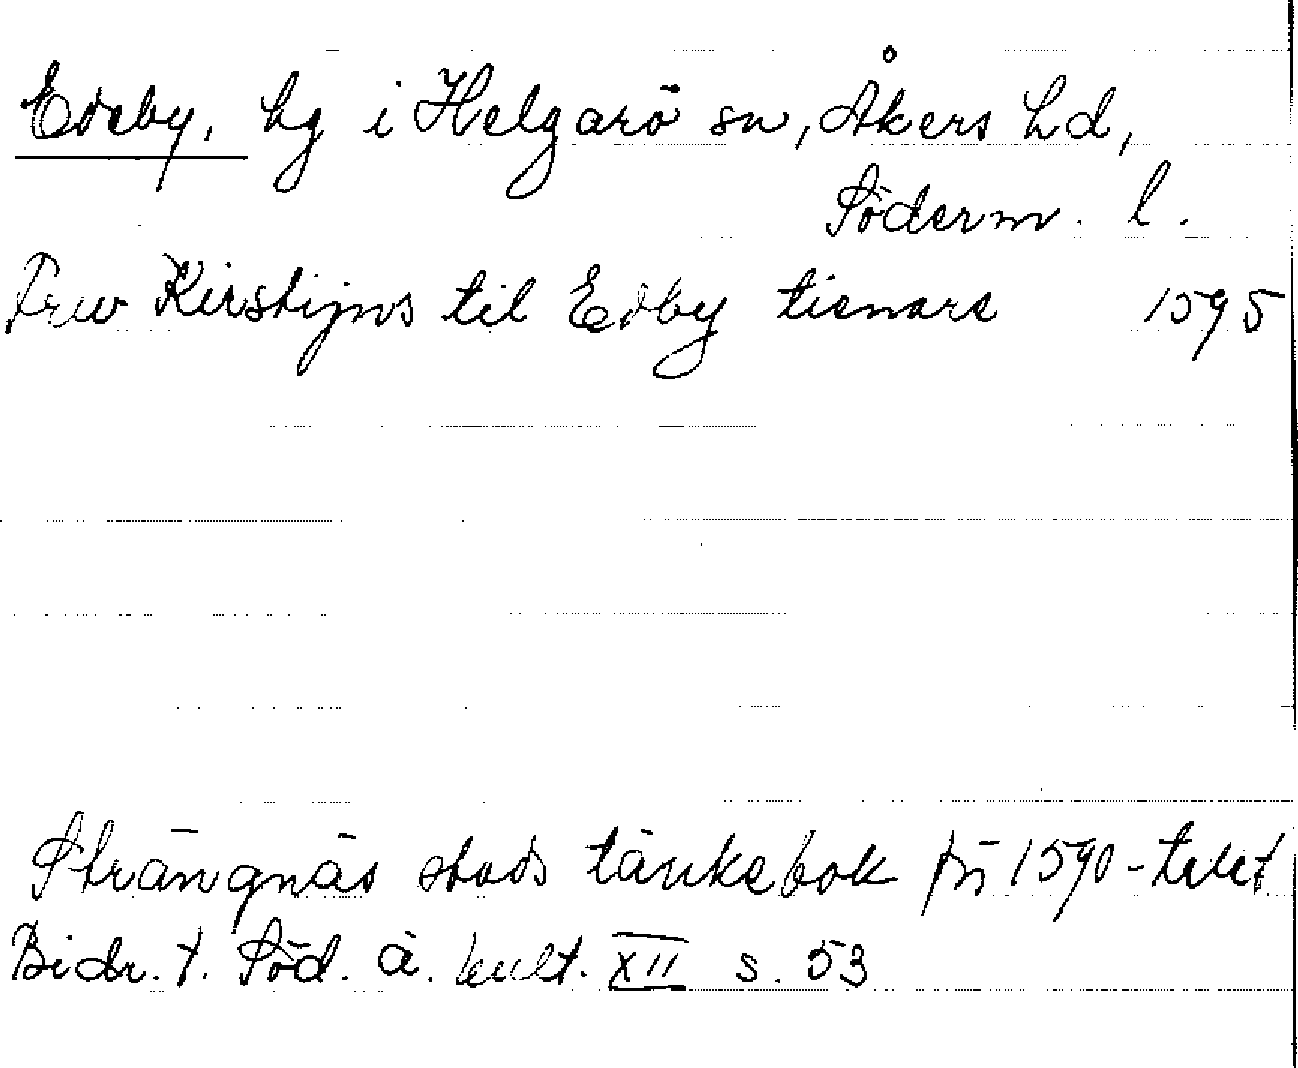 Edeby, hg i Helgarö sn, Åkers hd,
Söderm. l.
Frw Kirstijns til Edby tienare 1595
Strängnäs stads tänkebok frn 1590-talet
Bidr. t. Söd. ä. kult. XII s. 53